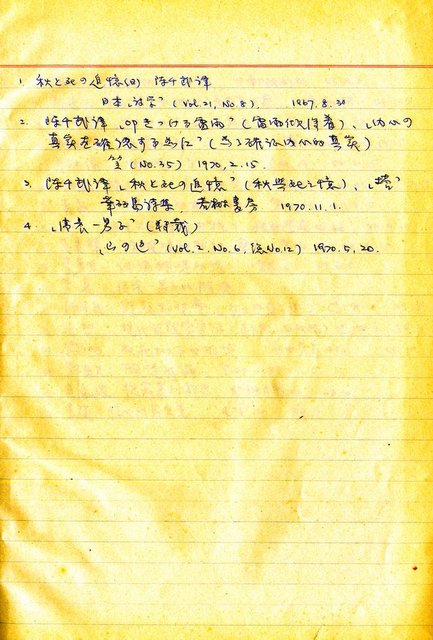 1. 秋と死の追憶(日) 陳千武譯
日本詩学" (Vol.21, No.8). 1967.8.30
2. 陳千武譯 叩きつける雷雨" (雷雨似浮着)、内心の
真実を確認する為に" (為了確認内心的真実)
笠 (No.35) 1970.2.15
3. 陳千武譯 秋と死の追憶" (秋與死之憶)、
華麗島詩集 若樹書房 1970.11.1.
4. (転載)
山の辺" (Vol.2. No.6, 総No.12) 1970.5.20.